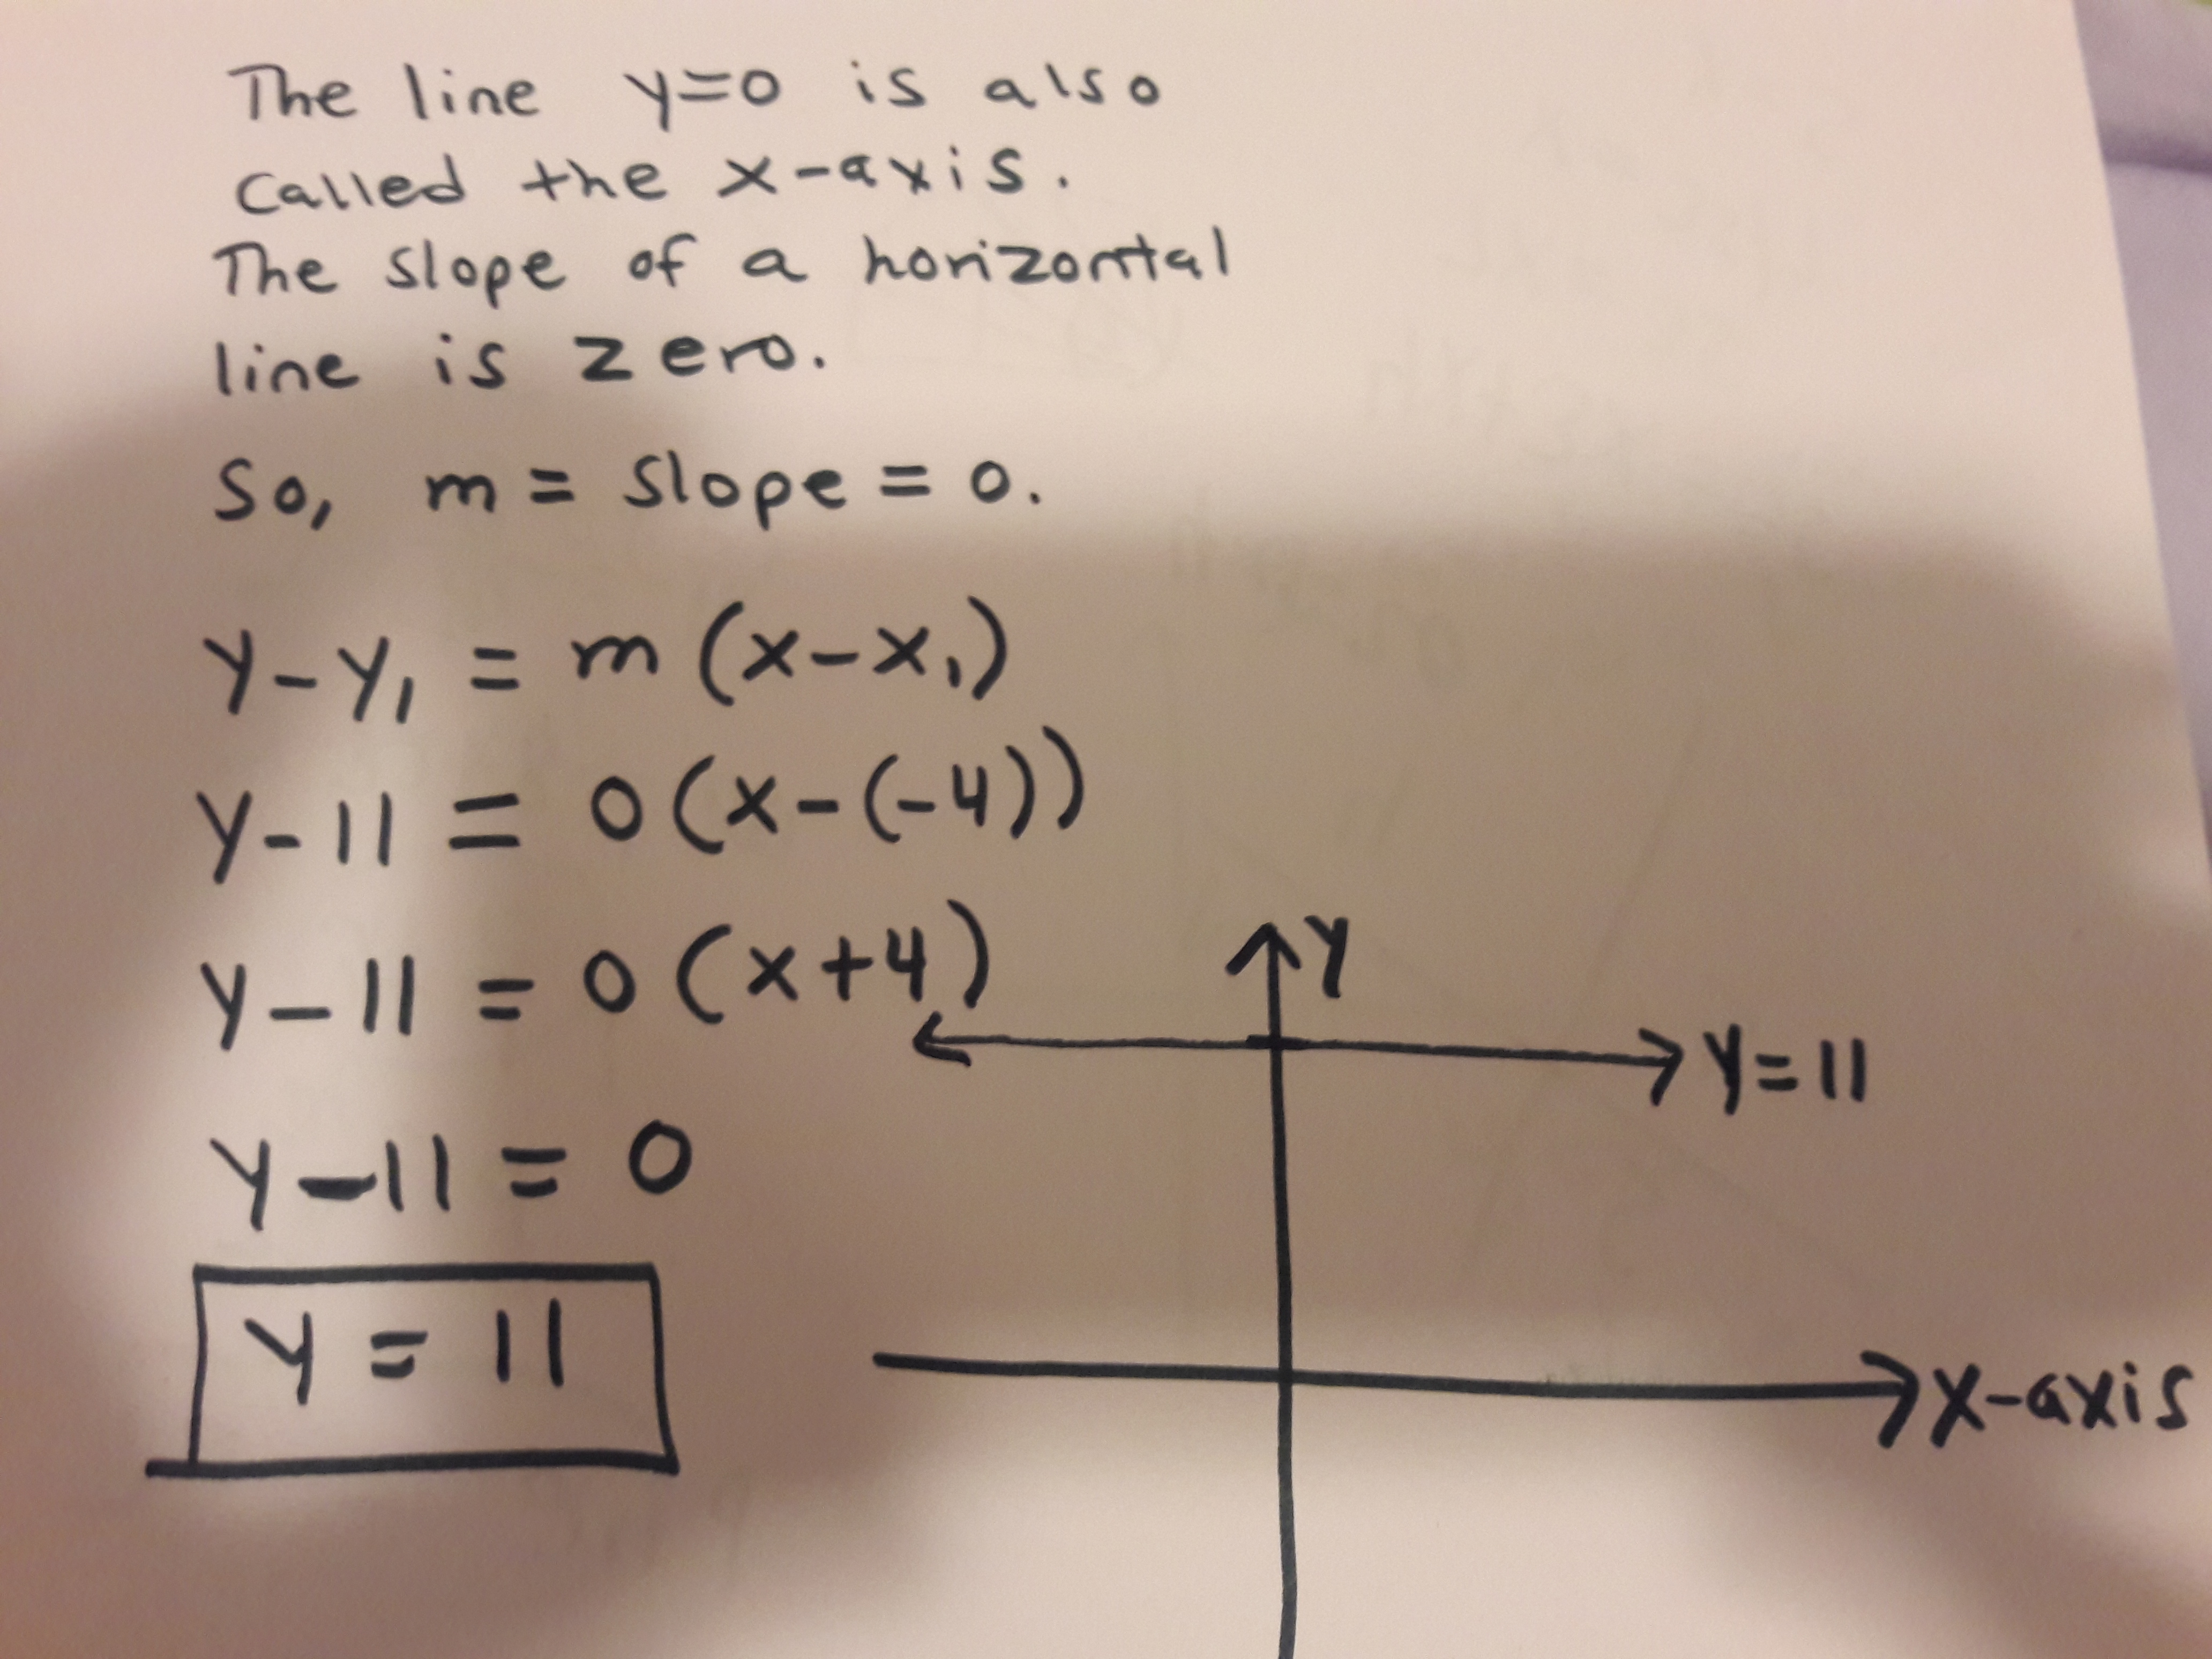 The line y=0 is also
called the x-axis.
The slope of a horizontal
line is zero.
So, m = slope = 0.
y-y₁ = m(x-x₁)
y-11 = 0(x-(-4))
y-11 = 0(x+4)
y-11 = 0
y = 11
y
y=11
x-axis